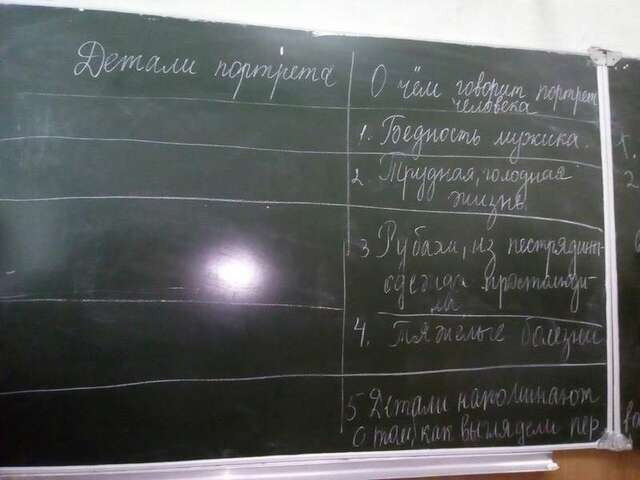 Детали портрета
О чём говорит портрет
человека
1. Бедность мужика.
2. Трудная, голодная
жизнь.
3 Рубахи, из пестрядины-
одежда простолюди-
4. Тяжёлые болезни
5 Детали напоминают
о том, как выглядели пер
1.
2